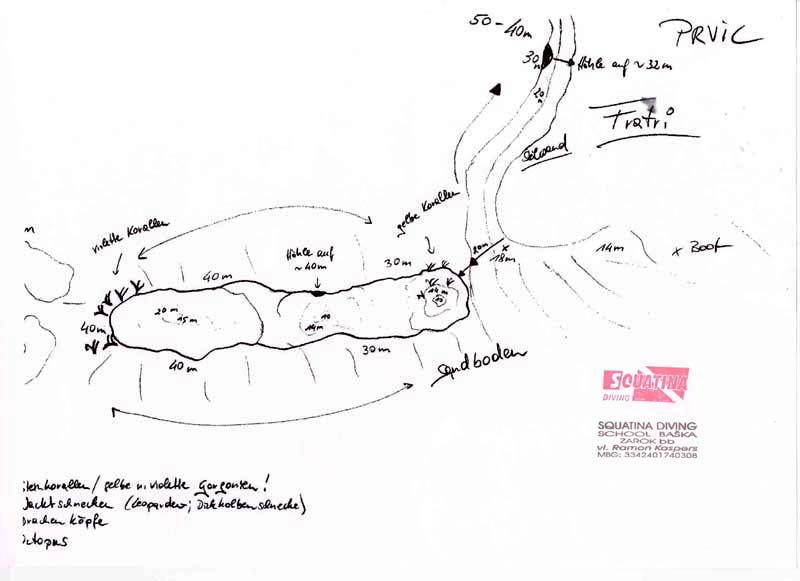 50-40m
PRVIC
30m
Höhle auf ~32m
20m
Tratri
Steilwand
gelbe Korallen
violette Korallen
20m
x
18m
14m
x Boot
Höhle auf
~40m
30m
40m
14m
20m
15m
10
14m
40m
40m
30m
Sandboden
SQUATINA
DIVING
SQUATINA DIVING
SCHOOL BAŠKA
ZAROK bb
vl. Ramon Kaspers
MBG: 3342401740308
korallen / gelbe u. violette Gorgonien!
Nacktschnecken (Leoparden; Dickkolbenschnecke)
Drachenköpfe
Octopus